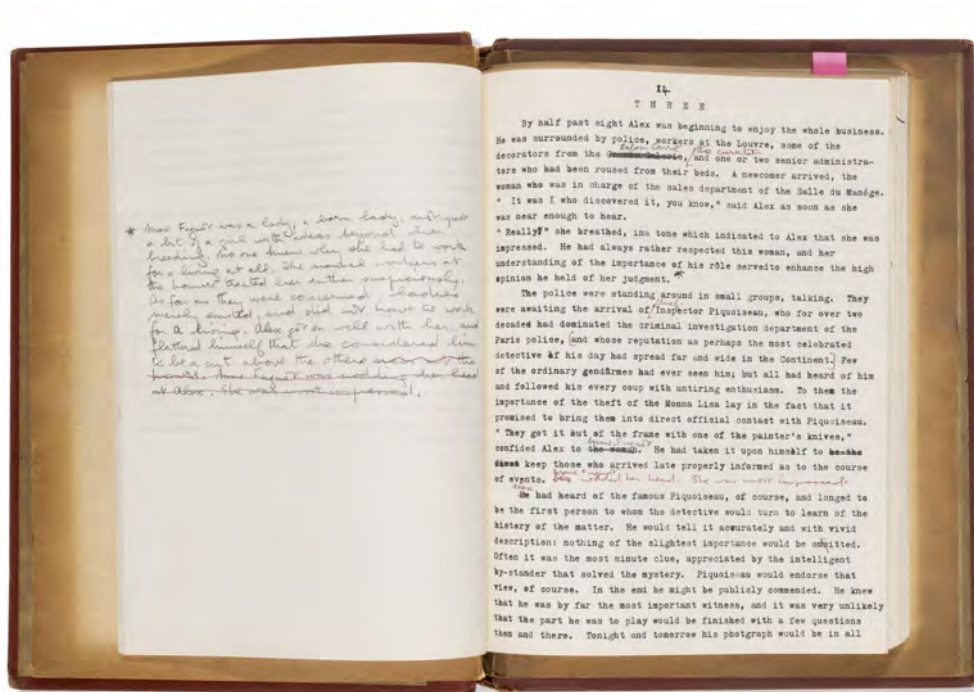 * Mme Fuguet was a lady, a born lady, not just
a bit of a girl with ideas beyond her
breeding. No one knew why she had to work
for a living at all. The normal workers at
the house treated her rather suspiciously.
As far as they were concerned ladies
merely existed, and did not have to work
for a living. Alex got on well with her, and
flattered himself that she considered him
to be a cut about the others
Mme Fuguet was nodding her head
at Alex. She was most impressed.
14
T H R E E
By half past eight Alex was beginning to enjoy the whole business.
He was surrounded by police, workers at the Louvre, some of the
Salon Carré, the curator
decorators from the Grande Galerie, and one or two senior administra-
tors who had been roused from their beds. A newcomer arrived, the
woman who was in charge of the sales department of the Salle du Manége.
" It was I who discovered it, you know," said Alex as soon as she
was near enough to hear.
"Really!" she breathed, ina tone which indicated to Alex that she was
impressed. He had always rather respected this woman, and her
understanding of the importance of his rôle servedto enhance the high
opinion he held of her judgment. *
The police were standing around in small groups, talking. They
chief
were awaiting the arrival of Inspector Piquoiseau, who for over two
decades had dominated the criminal investigation department of the
Paris police, (and whose reputation as perhaps the most celebrated
detective of his day had spread far and wide in the Continent.) Few
of the ordinary gendârmes had ever seen him; but all had heard of him
and followed his every coup with untiring enthusiasm. To them the
importance of the theft of the Monna Lisa lay in the fact that it
promised to bring them into direct official contact with Piquoiseau.
" They got it out of the frame with one of the painter's knives,"
Mme Fuguet
confided Alex to the woman. He had taken it upon himself to be the
first keep those who arrived late properly informed as to the course
Mme Fuguet
of events. She nodded her head. She was most impressed
Alex
He had heard of the famous Piquoiseau, of course, and longed to
be the first person to whom the detective would turn to learn of the
history of the matter. He would tell it accurately and with vivid
description: nothing of the slightest importance would be omitted.
Often it was the most minute clue, appreciated by the intelligent
by-stander that solved the mystery. Piquoiseau would endorse that
view, of course. In the end he might be publicly commended. He knew
that he was by far the most important witness, and it was very unlikely
that the part he was to play would be finished with a few questions
then and there. Tonight and tomorrow his photgraph would be in all